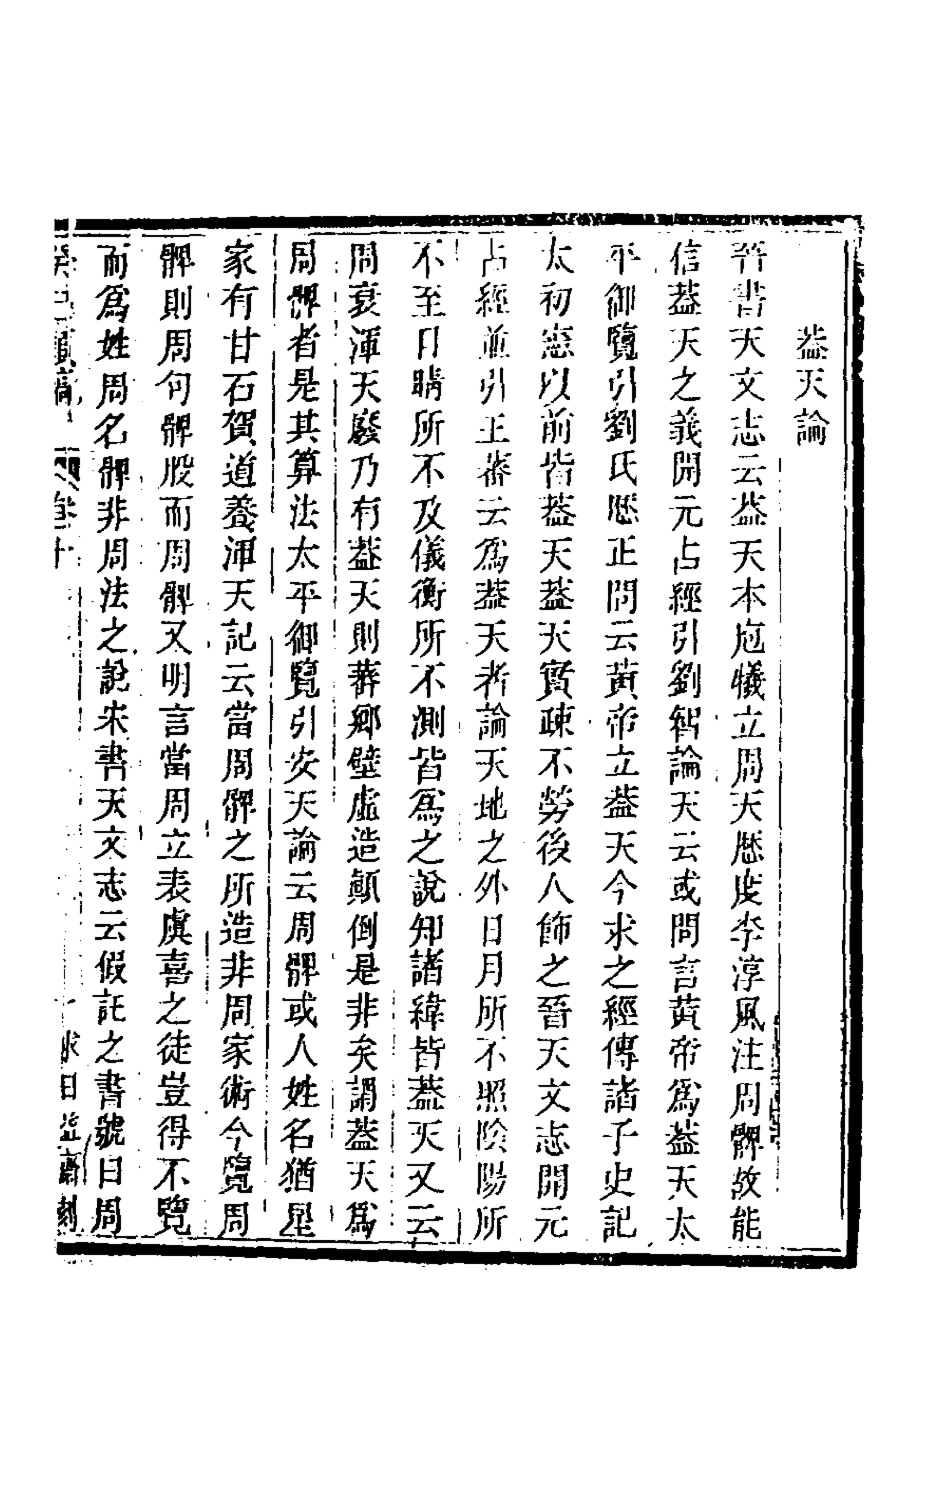 葢天論
晉書天文志云葢天本庖犧立周天厯度李淳風注周髀故能
信葢天之義開元占經引劉智論天云或問言黃帝爲葢天太
平御覽引劉氏厯正問云黃帝立葢天今求之經傳諸子史記
太初憲以前皆葢天葢天實疎不勞後人飾之晉天文志開元
占經並引王蕃云爲葢天者論天地之外日月所不照陰陽所
不至日睛所不及儀衡所不測皆爲之說知諸緯皆葢天又云
周衰渾天廢乃有葢天則蕃鄉壁虛造顛倒是非矣謂葢天爲
周髀者是其算法太平御覽引安天論云周髀或人姓名猶星
家有甘石賀道養渾天記云當周髀之所造非周家術今覽周
髀則周句髀股而周髀又明言當周立表虞喜之徒豈得不覽
而爲姓周名髀非周法之說宋書天文志云假託之書號曰周
癸巳類稿 卷十 求日益齋刻